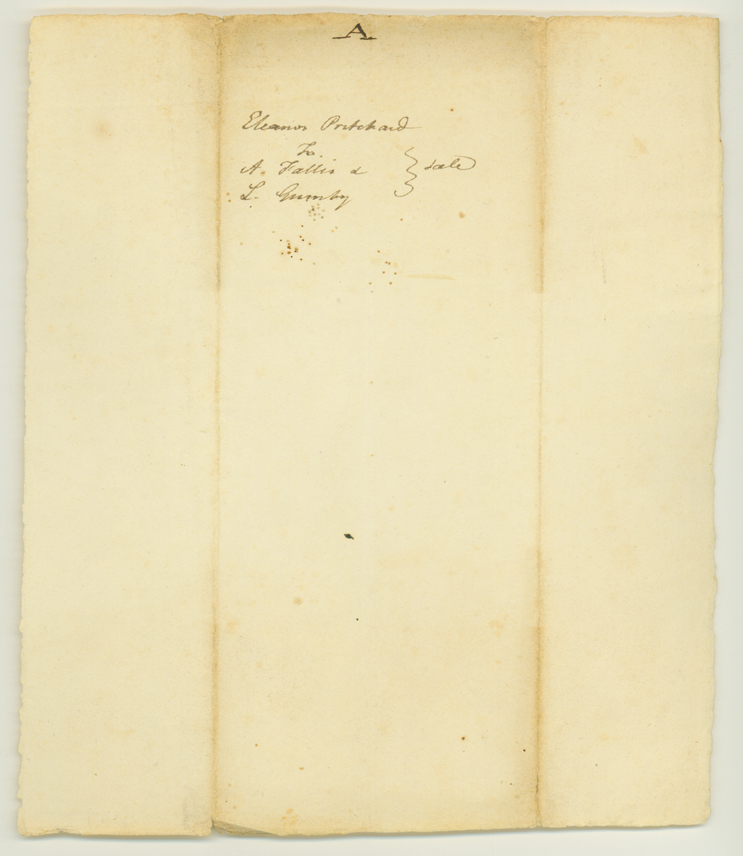 A
Eleanor Pritchard
To.
A. Fallis &
} sale
L. Gumby